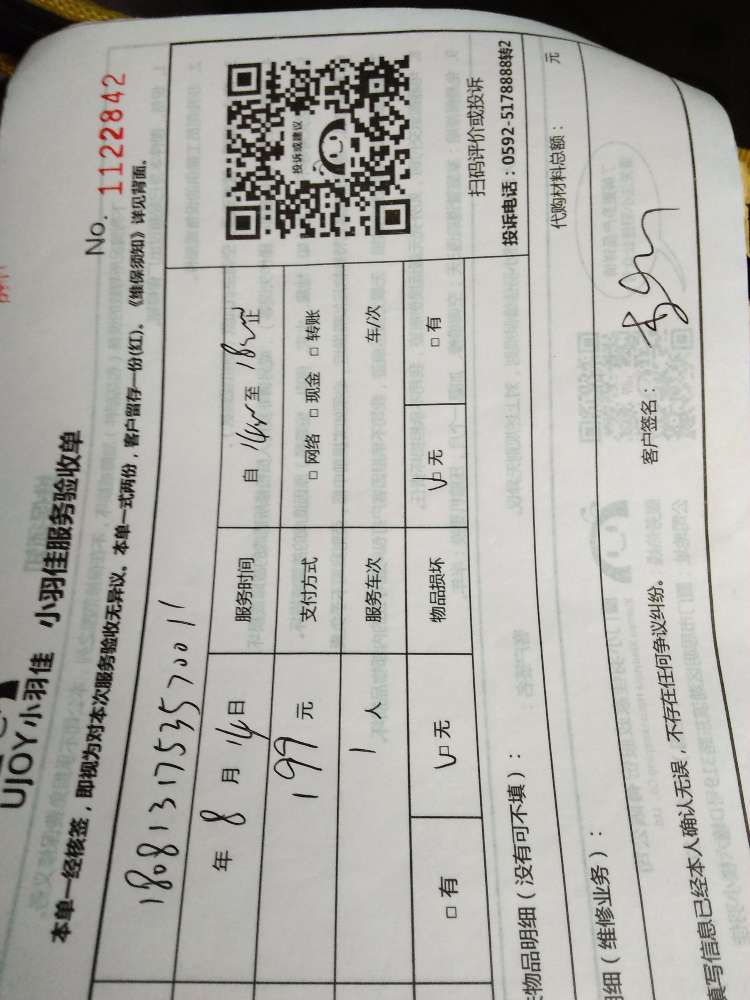 UJOY小羽佳 小羽佳服务验收单
No. 1122842
本单一经核签，即视为对本次服务验收无异议。本单一式两份，客户留存一份(红)。《维保须知》详见背面。
180813175357001
年 8 月 14 日 服务时间 自 14 至 18 止
199 元 支付方式 □ 网络 □ 现金 □ 转账
1 人 服务车次 车/次
□ 有 □ 无 物品损坏 □ 无 □ 有
投诉或建议
扫码评价或投诉
投诉电话：0592-5178888转2
物品明细（没有可不填）：
代购材料总额： 元
细（维修业务）：
填写信息已经本人确认无误，不存在任何争议纠纷。
客户签名：